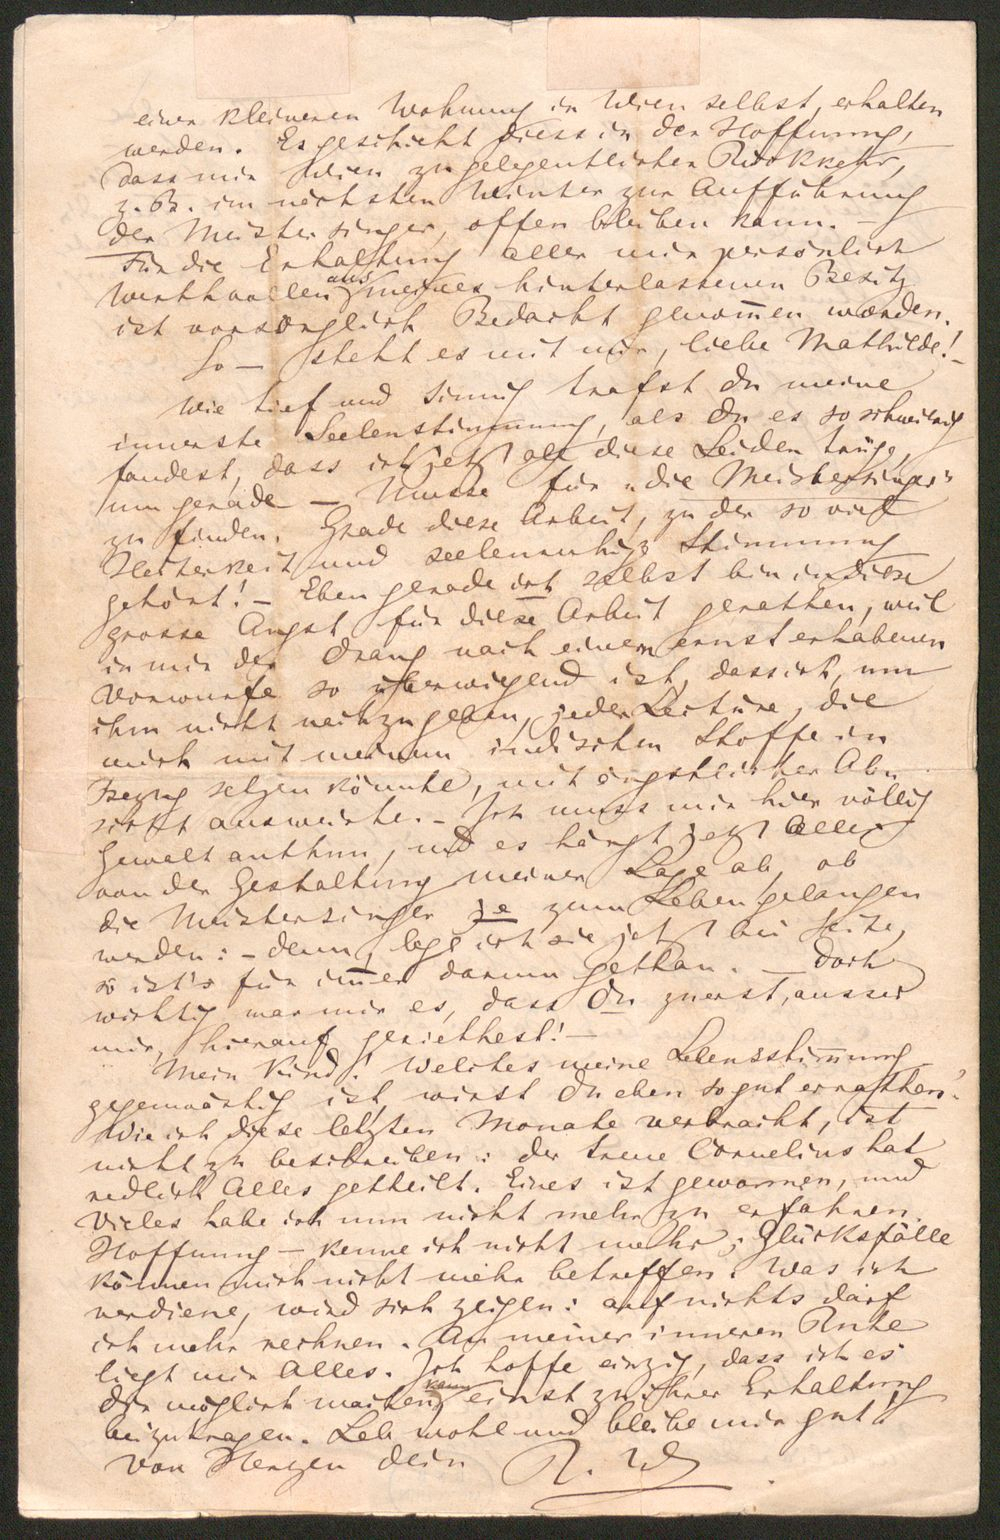 einer kleineren Wohnung in Wien selbst, erhalten
werden. Es geschieht diess in der Hoffnung,
dass mir Wien zu gelegentlicher Rückkehr,
z. B. im nächsten Winter zur Aufführung
der Meistersinger, offen bleiben kann. —
Für die Erhaltung alles mir persönlich
Werthvollen aus meines hinterlassenen Besitz
ist vorsorglich Bedacht genom̄en worden.
So — steht es mit mir, liebe Mathilde! —
Wie tief und sinnig trafst Du meine
innerste Seelenstimmung, als Du es so schwierig
fandest, dass ich jetzt alle diese Leiden trüge,
um gerade — Musse für „die Meistersinger“
zu finden. Grade diese Arbeit, zu der so viel
Heiterkeit und seelenruhige Stimmung
gehört! — Eben gerade ich selbst bin in diese
grosse Angst für diese Arbeit gerathen, weil
in mir der Drang nach einem ernst erhabenen
Vorwurfe so überwiegend ist, dass ich, um
ihm nicht nachzugeben, jeder Lectüre, die
mich mit meinem indischen Stoffe in
Bezug setzen könnte, mit ängstlicher Ab-
sicht ausweiche. — Ich muss mir hier völlig
Gewalt anthun, und es hängt jetzt Alles
von der Gestaltung meiner Lage ab, ob
die Meistersinger je zum Leben gelangen
werden: — denn, lege ich sie jetzt bei Seite,
so ist's für im̄er darum gethan. — Doch
wichtig war mir es, dass Du zuerst, ausser
mir, hierauf geriethest! —
Mein Kind! Welches meine Lebensstim̄ung
gegenwärtig ist, wirst Du eben so gut errathen!
Wie ich diese letzten Monate verbracht, ist
nicht zu beschreiben: der treue Cornelius hat
redlich Alles getheilt. Eines ist gewonnen, und
Vieles habe ich nun nicht mehr zu erfahren.
Hoffnung — kenne ich nicht mehr; Glücksfälle
können mich nicht mehr betreffen. Was ich
verdiene, wird sich zeigen: auf nichts darf
ich mehr rechnen. An meiner inneren Ruhe
liegt mir Alles. Ich hoffe einzig, dass ich es
Dir möglich machen kann einst zu ihrer Erhaltung
beizutragen. Leb wohl und bleibe mir gut!
Von Herzen Dein R. W.